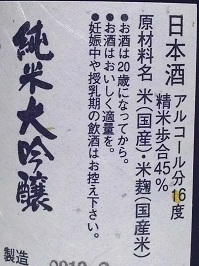 日本酒 アルコール分16度
精米歩合45%
原材料名 米(国産)・米麹(国産米)
●お酒は20歳になってから。
●お酒はおいしく適量を。
●妊娠中や授乳期の飲酒はお控え下さい。
純米大吟醸
製造